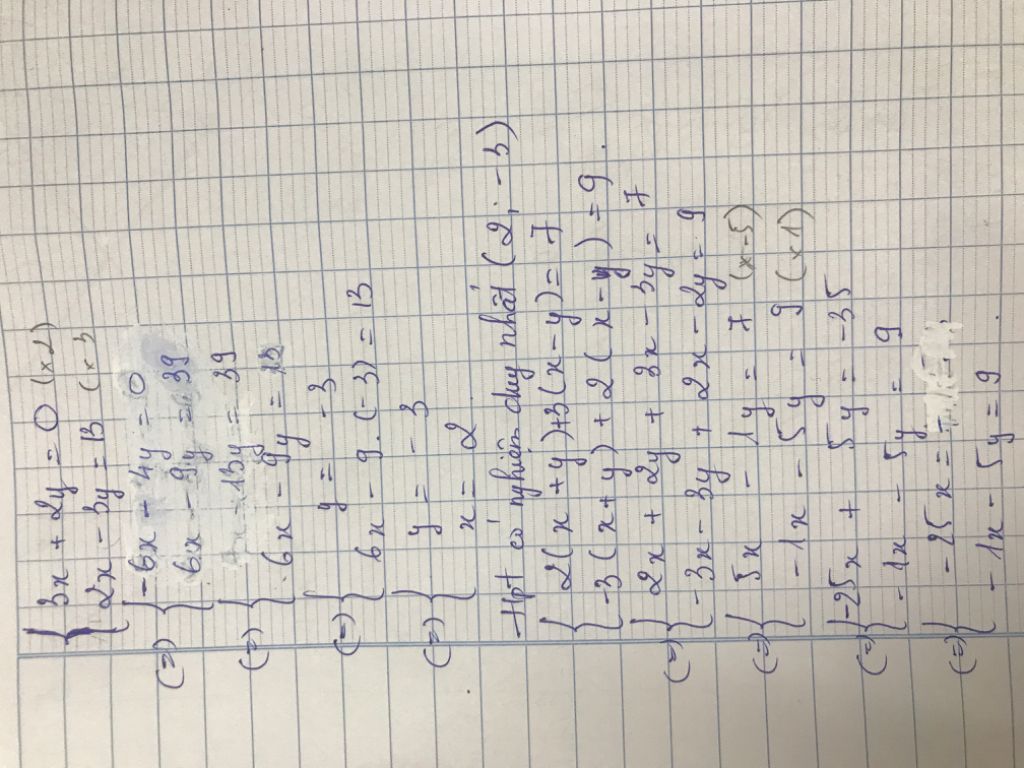 3x + 2y = 0 (x2)
2x - 3y = 13 (x3
(=) -6x - 4y = 0
6x - 9y = 39
(=) - 13y = 39
6x - 9y =
(=) y = -3
6x - 9.(-3) = 13
(=) y = -3
x = 2
-Hpt có nghiệm duy nhất (2; -3)
2(x + y) + 3(x - y) = 7
-3(x + y) + 2(x - y) = 9.
(=) 2x + 2y + 3x - 3y = 7
-3x - 3y + 2x - 2y = 9
(=) 5x - 1y = 7 (x-5)
-1x - 5y = 9 (x1)
(=) -25x + 5y = -35
-1x - 5y = 9
(=) -25x =
-1x - 5y = 9